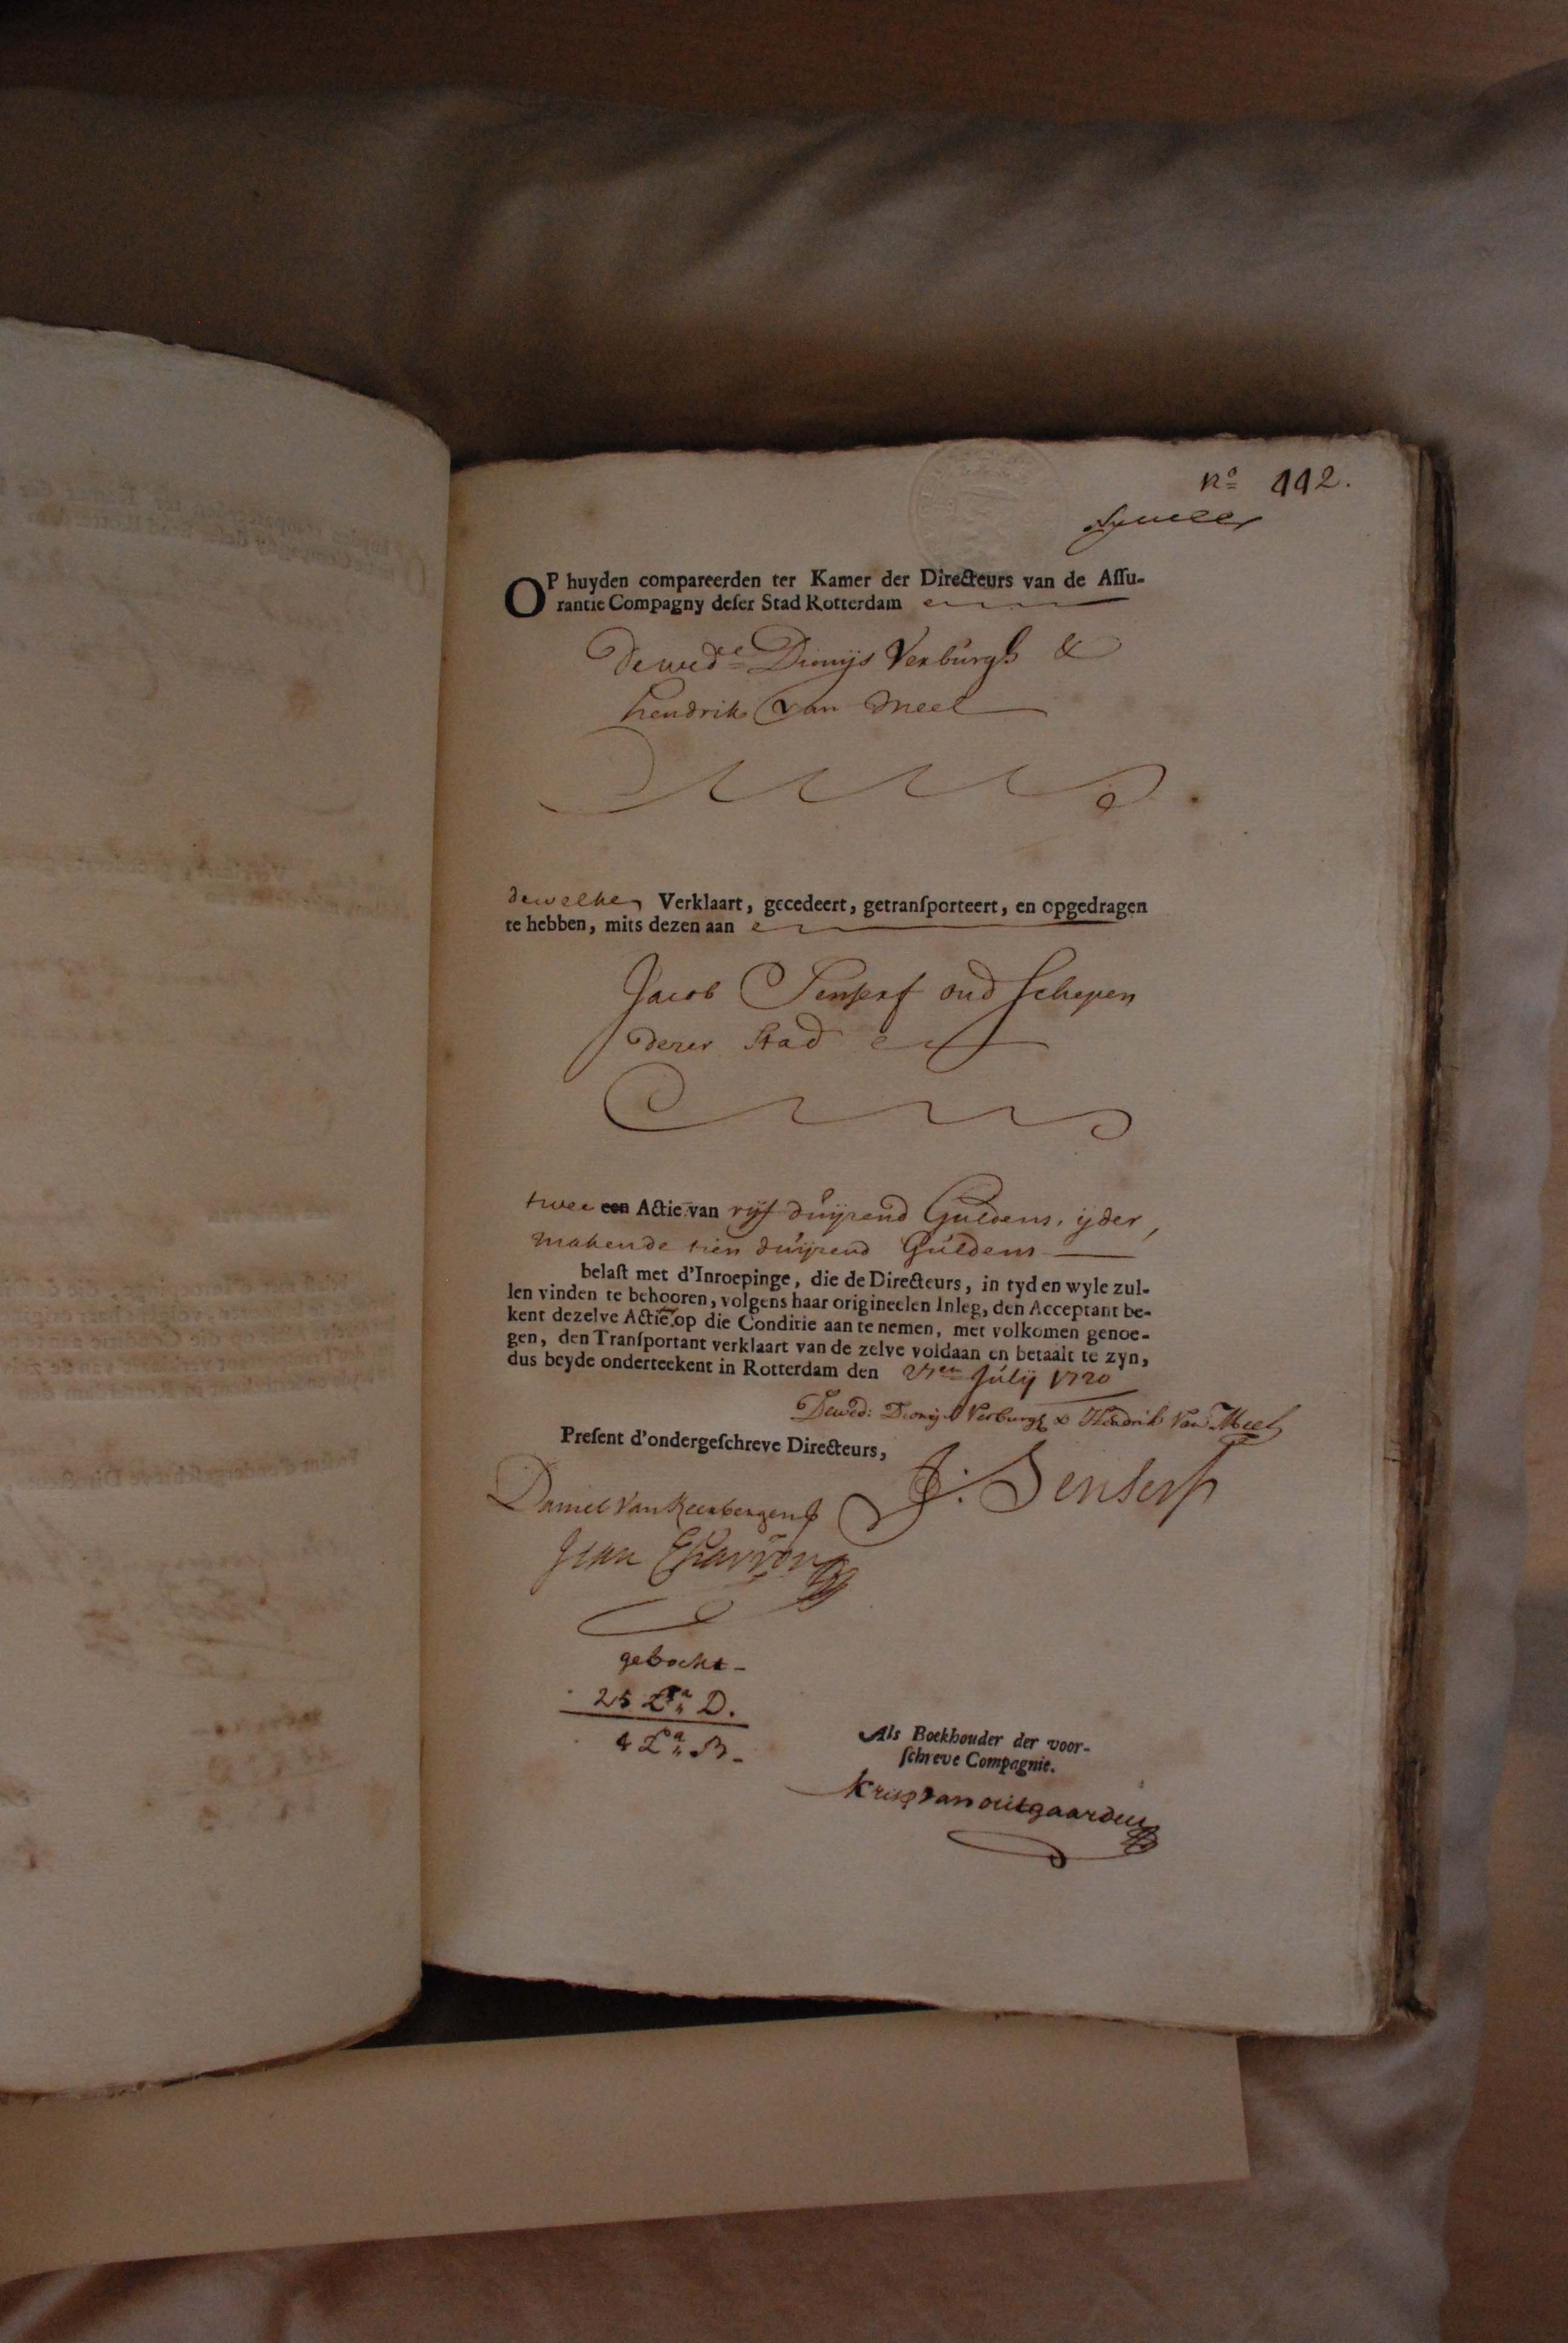 No 112.
OP huyden compareerden ter Kamer der Directeurs van de Assu-
rantie Compagny deser Stad Rotterdam
De wede Dionijs Verburgh &
hendrik van Meel
dewelke Verklaart, gecedeert, getransporteert, en opgedragen
te hebben, mits dezen aan
Jacob Senserf oud schepen
dezer Stad
twee een Actie van vijf duijzend Guldens, ijder,
makende tien duijzend Guldens
belast met d'Inroepinge, die de Directeurs, in tyd en wyle zul-
len vinden te behooren, volgens haar origineelen Inleg, den Acceptant be-
kent dezelve Actie op die Conditie aan te nemen, met volkomen genoe-
gen, den Transportant verklaart van de zelve voldaan en betaalt te zyn,
dus beyde onderteekent in Rotterdam den Julij 1720
De wed: Dionijs Verburgh & Hendrik Van Meel
Present d'ondergeschreve Directeurs,
J: Senserf
Daniel Van Reerbergen
Jean Charron
gebocht
25 La D.
4 La B.
Als Boekhouder der voor-
schreve Compagnie.
Kris van outgaarden